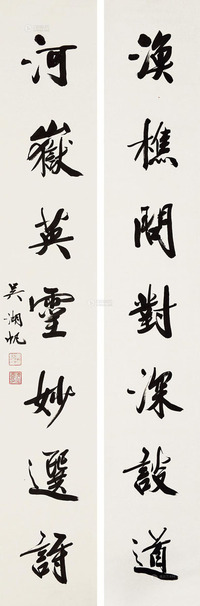 渔樵問對深談道
河嶽英靈妙選詩
吴湖帆